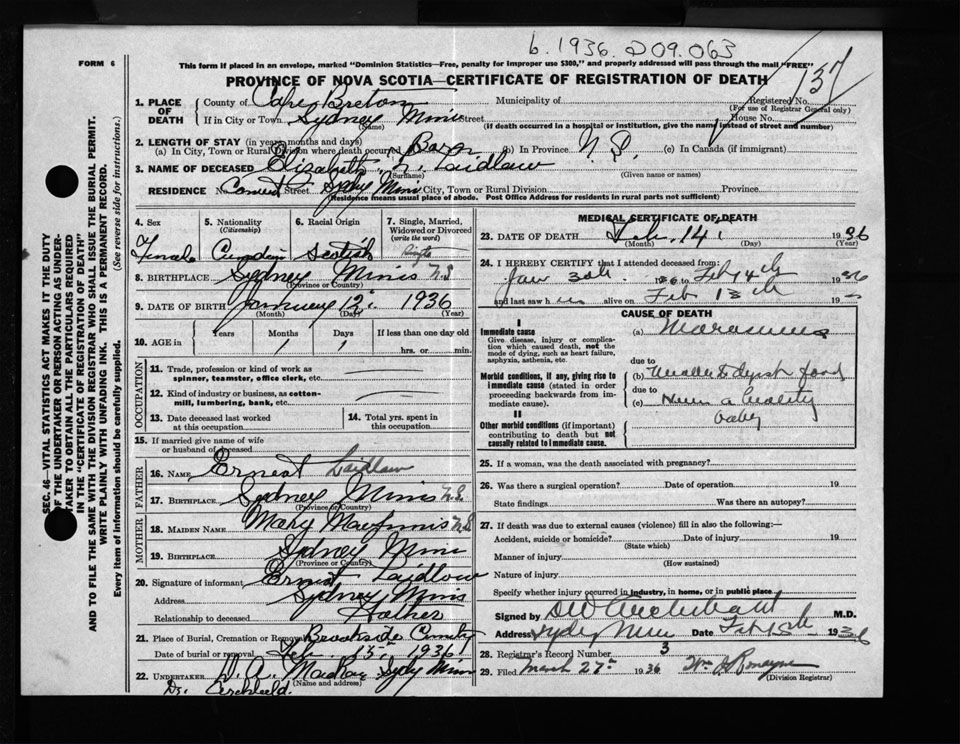 b. 1936. 209.063
FORM 6
This form if placed in an envelope, marked "Dominion Statistics—Free, penalty for improper use $300," and properly addressed will pass through the mail "FREE"
PROVINCE OF NOVA SCOTIA—CERTIFICATE OF REGISTRATION OF DEATH
137
1. PLACE OF DEATH
County of Cape Breton Municipality of
Registered No.
(For use of Registrar General only)
If in City or Town Sydney Mines Street House No.
(Name) (If death occurred in a hospital or institution, give the name instead of street and number)
2. LENGTH OF STAY (in years, months and days)
(a) In City, Town or Rural Division where death occurred Born (b) In Province N.S. (c) In Canada (if immigrant)
3. NAME OF DECEASED Elizabeth Laidlaw
(Surname) (Given name or names)
RESIDENCE No. Convent Street Sydney Mines City, Town or Rural Division Province
(Residence means usual place of abode. Post Office Address for residents in rural parts not sufficient)
SEC. 46—VITAL STATISTICS ACT MAKES IT THE DUTY
OF THE UNDERTAKER OR PERSON ACTING AS UNDER-
TAKER TO OBTAIN ALL THE PARTICULARS REQUIRED
IN THE "CERTIFICATE OF REGISTRATION OF DEATH"
AND TO FILE THE SAME WITH THE DIVISION REGISTRAR WHO SHALL ISSUE THE BURIAL PERMIT.
WRITE PLAINLY WITH UNFADING INK. THIS IS A PERMANENT RECORD.
Every item of information should be carefully supplied. (See reverse side for instructions.)
4. Sex
5. Nationality
(Citizenship)
6. Racial Origin
7. Single, Married, Widowed or Divorced
(write the word)
Female Canadian Scotish Single
8. BIRTHPLACE Sydney Mines N.S
(Province or Country)
9. DATE OF BIRTH January 12 1936
(Month) (Day) (Year)
10. AGE in
Years Months Days If less than one day old
1 1 hrs. or min.
OCCUPATION
11. Trade, profession or kind of work as spinner, teamster, office clerk, etc.
12. Kind of industry or business, as cotton-mill, lumbering, bank, etc.
13. Date deceased last worked at this occupation
14. Total yrs. spent in this occupation
15. If married give name of wife or husband of deceased
FATHER
16. NAME Ernest Laidlaw
17. BIRTHPLACE Sydney Mines N.S.
(Province or Country)
MOTHER
18. MAIDEN NAME Mary MacInnis N.S
19. BIRTHPLACE Sydney Mines
(Province or Country)
20. Signature of informant Ernest Laidlaw
Address Sydney Mines
Relationship to deceased Father
21. Place of Burial, Cremation or Removal Brookside Cemetery
Date of burial or removal Feb. 15 1936
22. UNDERTAKER Sydney Mines
(Name and address)
Dr. Archibald.
MEDICAL CERTIFICATE OF DEATH
23. DATE OF DEATH Feb. 14 1936
(Month) (Day) (Year)
24. I HEREBY CERTIFY that I attended deceased from:
Jan 30th 1936 to Feb 14th 1936
and last saw h alive on Feb 13th 19
CAUSE OF DEATH
I
Immediate cause
Give disease, injury, or complication which caused death, not the mode of dying, such as heart failure, asphyxia, asthenia, etc.
(a) Marasmus
due to
Morbid conditions, if any, giving rise to immediate cause (stated in order proceeding backwards from immediate cause).
(b) Unable to digest food
due to
(c) Never a healthy
baby
II
Other morbid conditions (if important) contributing to death but not causally related to immediate cause.
25. If a woman, was the death associated with pregnancy?
26. Was there a surgical operation? Date of operation 19
State findings Was there an autopsy?
27. If death was due to external causes (violence) fill in also the following:—
Accident, suicide or homicide? Date of injury 19
(State which)
Manner of injury
(How sustained)
Nature of injury
Specify whether injury occurred in industry, in home, or in public place
Signed by Archibald M.D.
Address Sydney Mines Date Feb 15th 1936
28. Registrar's Record Number 3
29. Filed March 27th 1936 Wm J Romayne
(Division Registrar)